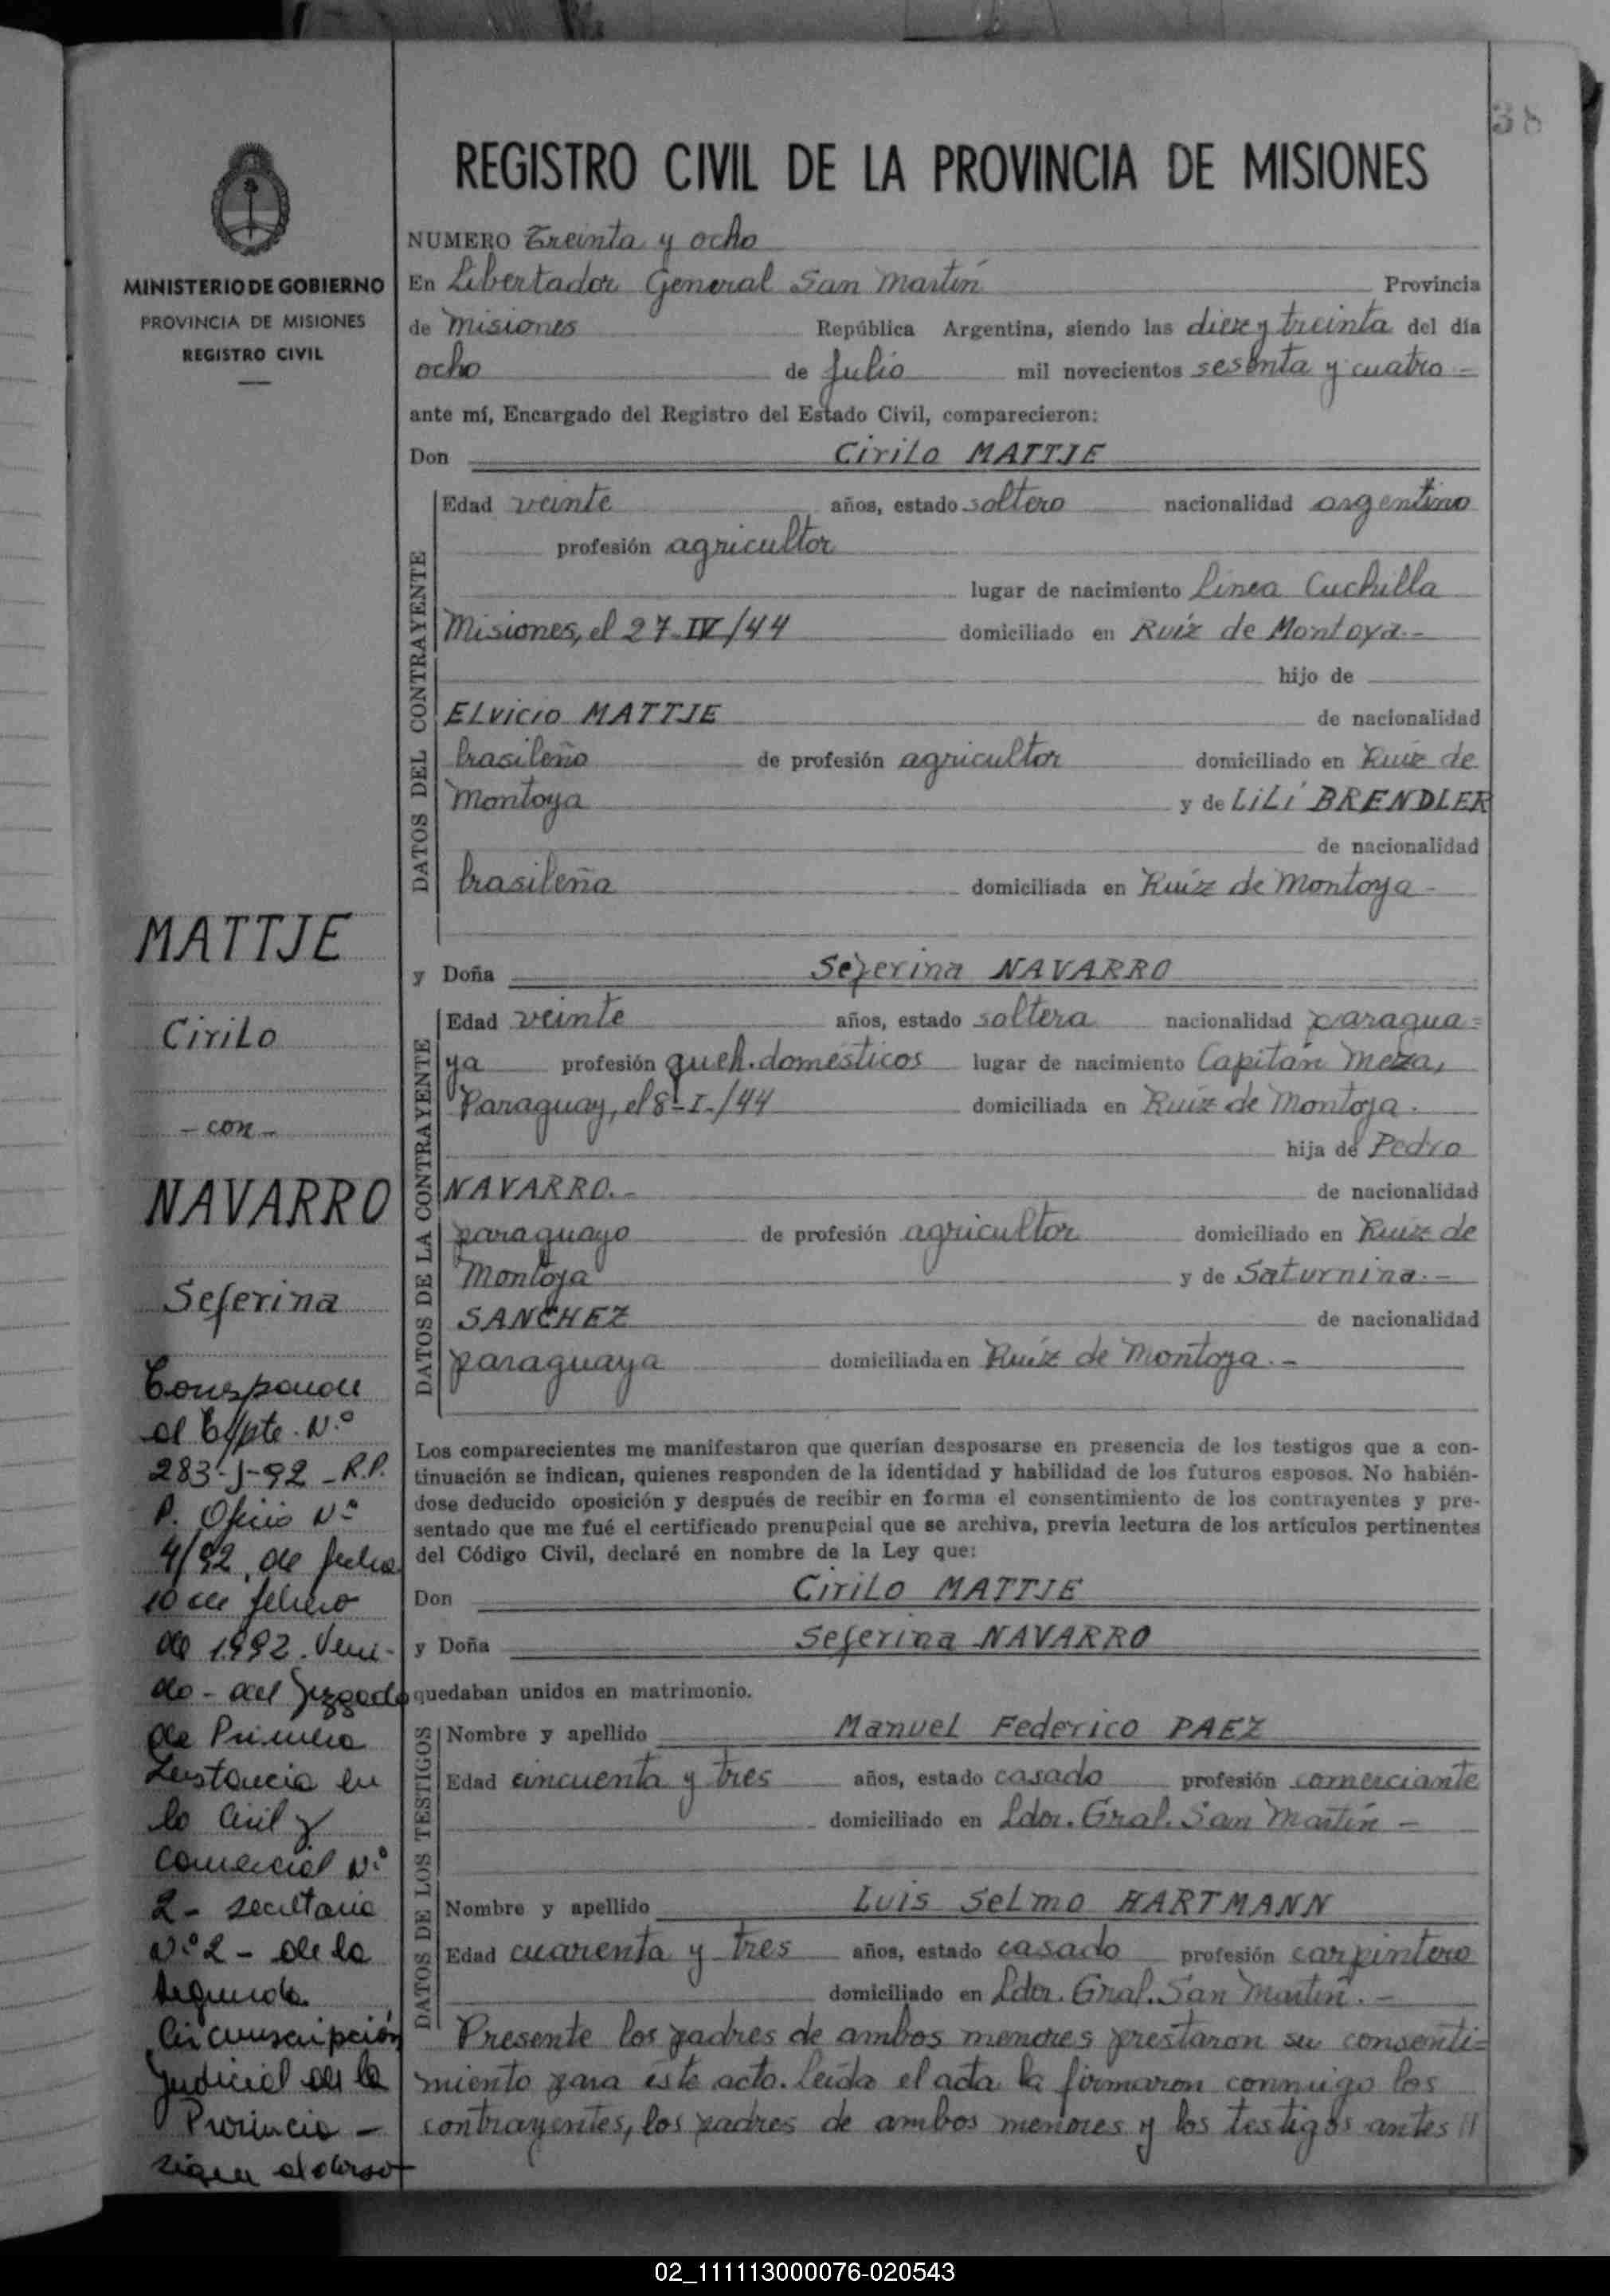 38
MINISTERIO DE GOBIERNO
PROVINCIA DE MISIONES
REGISTRO CIVIL
MATTJE
Cirilo
- con -
NAVARRO
Seferina
Corresponde
al Expte. N.°
283-J-92 - R.P.
P. Oficio N°
4/92, de fecha
10 de febrero
de 1992. Veni-
do - del Juzgado
de Primera
Instancia en
lo Civil y
Comercial N.°
2 - secretaria
N.° 2 - de la
Segunda
Circunscripción
Judicial de la
Provincia -
sigue al dorso
REGISTRO CIVIL DE LA PROVINCIA DE MISIONES
NUMERO Treinta y ocho
En Libertador General San Martín Provincia
de Misiones República Argentina, siendo las diez y treinta del día
ocho de Julio mil novecientos sesenta y cuatro =
ante mí, Encargado del Registro del Estado Civil, comparecieron:
Don Cirilo MATTJE
DATOS DEL CONTRAYENTE
Edad veinte años, estado soltero nacionalidad argentino
profesión agricultor
lugar de nacimiento Línea Cuchilla
Misiones, el 27-IV/44 domiciliado en Ruíz de Montoya.-
hijo de
ELvicio MATTJE de nacionalidad
brasileño de profesión agricultor domiciliado en Ruíz de
Montoya y de LiLí BRENDLER
de nacionalidad
brasileña domiciliada en Ruíz de Montoya -
y Doña Seferina NAVARRO
DATOS DE LA CONTRAYENTE
Edad veinte años, estado soltera nacionalidad paragua=
ya profesión queh. domésticos lugar de nacimiento Capitán Meza,
Paraguay, el 8-I-/44 domiciliada en Ruíz de Montoya.
hija de Pedro
NAVARRO.- de nacionalidad
paraguayo de profesión agricultor domiciliado en Ruíz de
Montoya y de Saturnina.-
SANCHEZ de nacionalidad
paraguaya domiciliada en Ruíz de Montoya.-
Los comparecientes me manifestaron que querían desposarse en presencia de los testigos que a con-
tinuación se indican, quienes responden de la identidad y habilidad de los futuros esposos. No habién-
dose deducido oposición y después de recibir en forma el consentimiento de los contrayentes y pre-
sentado que me fué el certificado prenupcial que se archiva, previa lectura de los artículos pertinentes
del Código Civil, declaré en nombre de la Ley que:
Don Cirilo MATTJE
y Doña Seferina NAVARRO
quedaban unidos en matrimonio.
DATOS DE LOS TESTIGOS
Nombre y apellido Manuel Federico PAEZ
Edad cincuenta y tres años, estado casado profesión comerciante
domiciliado en Ldor. Gral. San Martín -
Nombre y apellido Luis Selmo HARTMANN
Edad cuarenta y tres años, estado casado profesión carpintero
domiciliado en Ldor. Gral. San Martín.-
Presente los padres de ambos menores prestaron su consenti=
miento para éste acto. Leída el acta la firmaron conmigo los
contrayentes, los padres de ambos menores y los testigos antes //
02_111113000076-020543